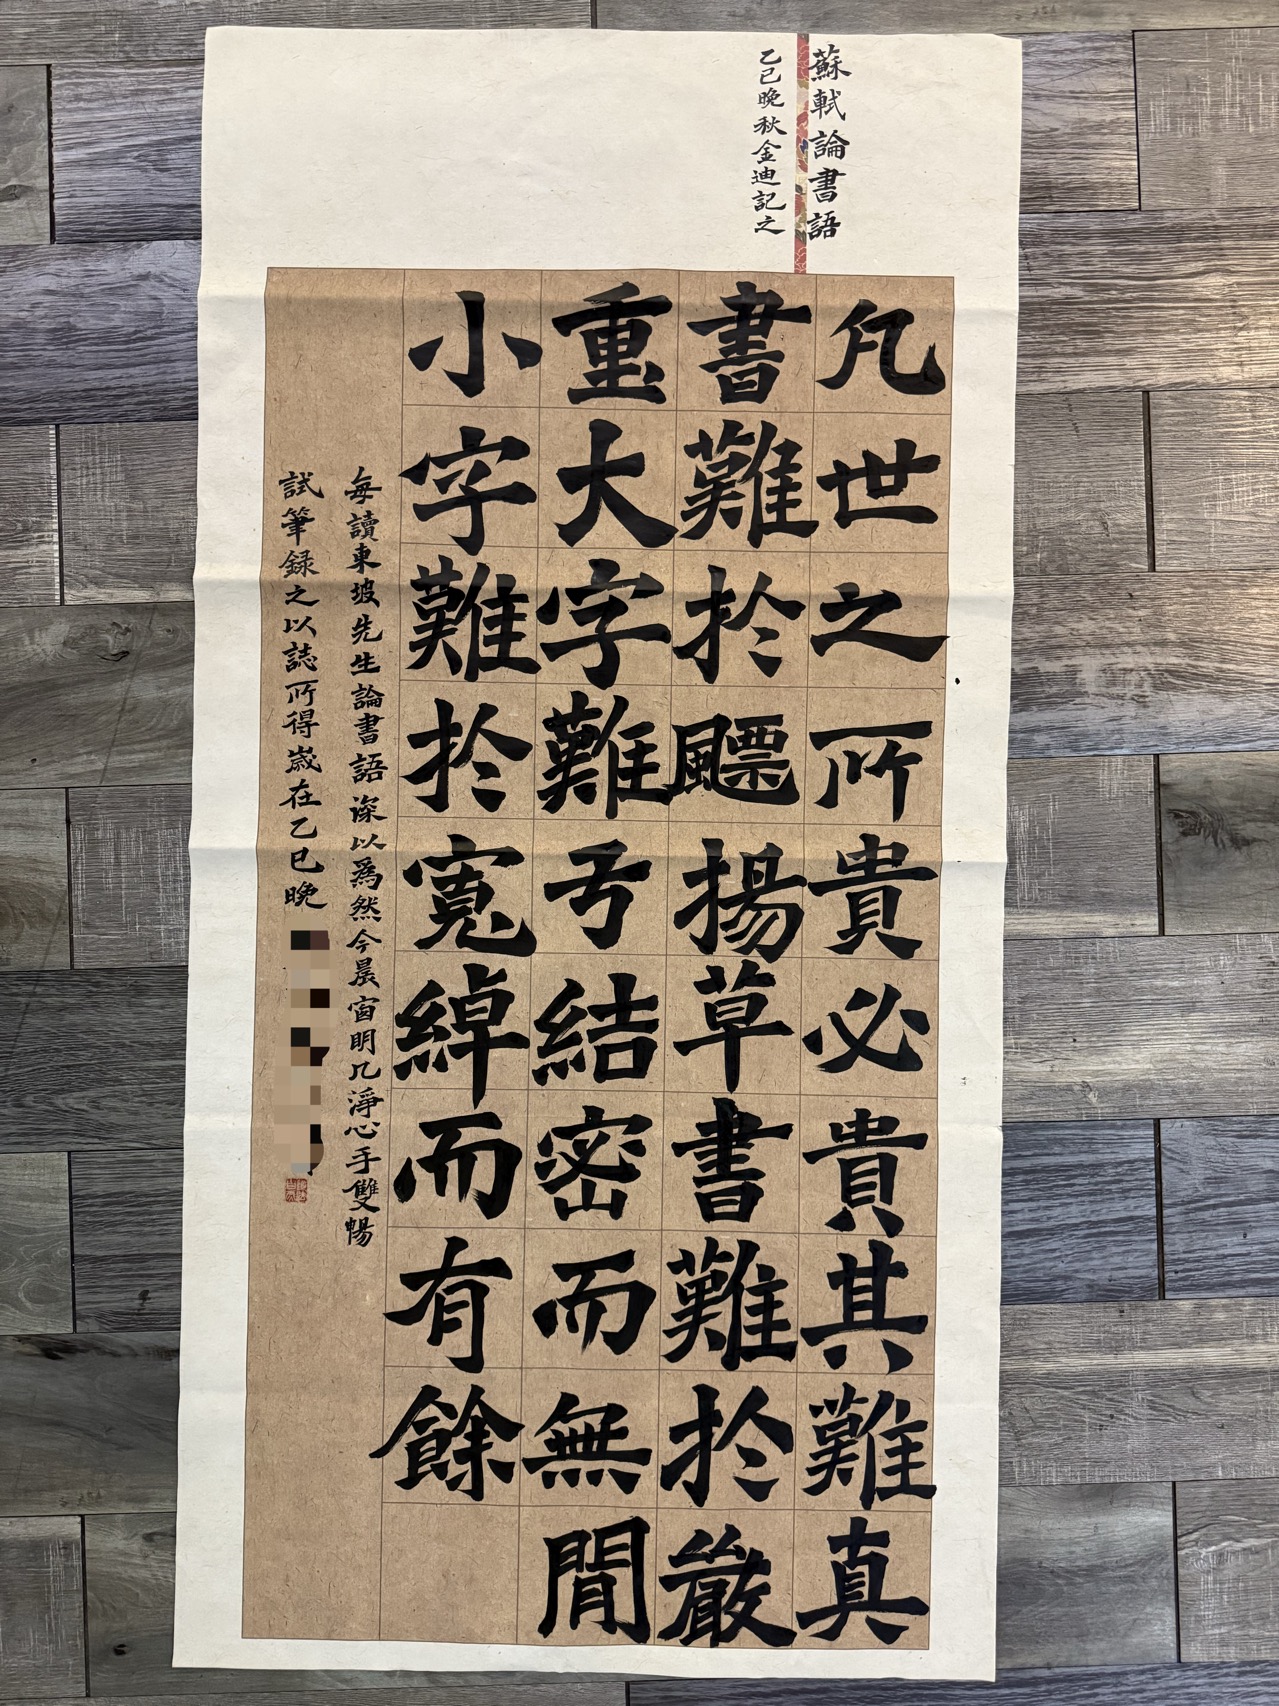 蘇軾論書語
乙巳晚秋金迪記之
凡世之所貴必貴其難真
書難於飃揚草書難於嚴
重大字難於結密而無間
小字難於寬綽而有餘
每讀東坡先生論書語深以為然今晨窗明几淨心手雙暢
試筆録之以誌所得歲在乙巳晚